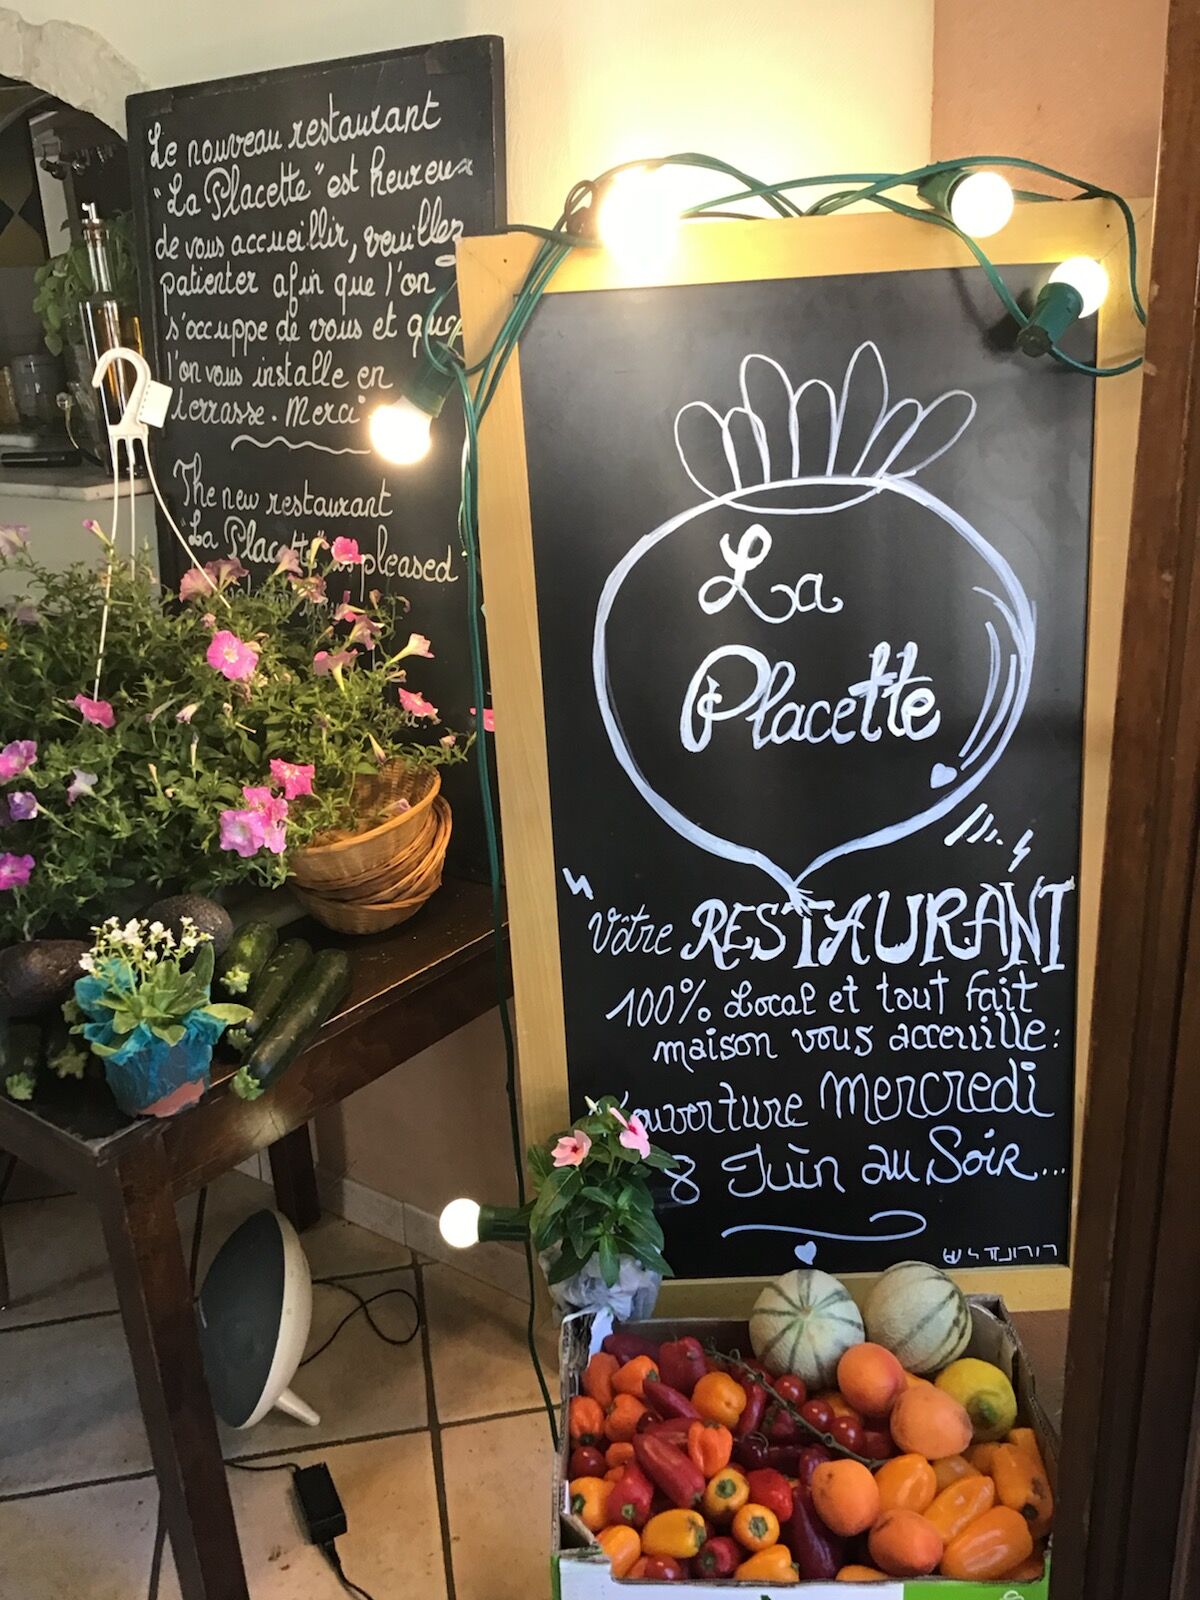 Le nouveau restaurant
"La Placette" est heureux
de vous accueillir, veuillez
patienter afin que l'on
s'occuppe de vous et que
l'on vous installe en
terrasse. Merci
The new restaurant
"La Placette" is pleased
La
Placette
Vôtre RESTAURANT
100% Local et tout fait
maison vous acceuille:
Ouverture Mercredi
8 Juin au Soir...